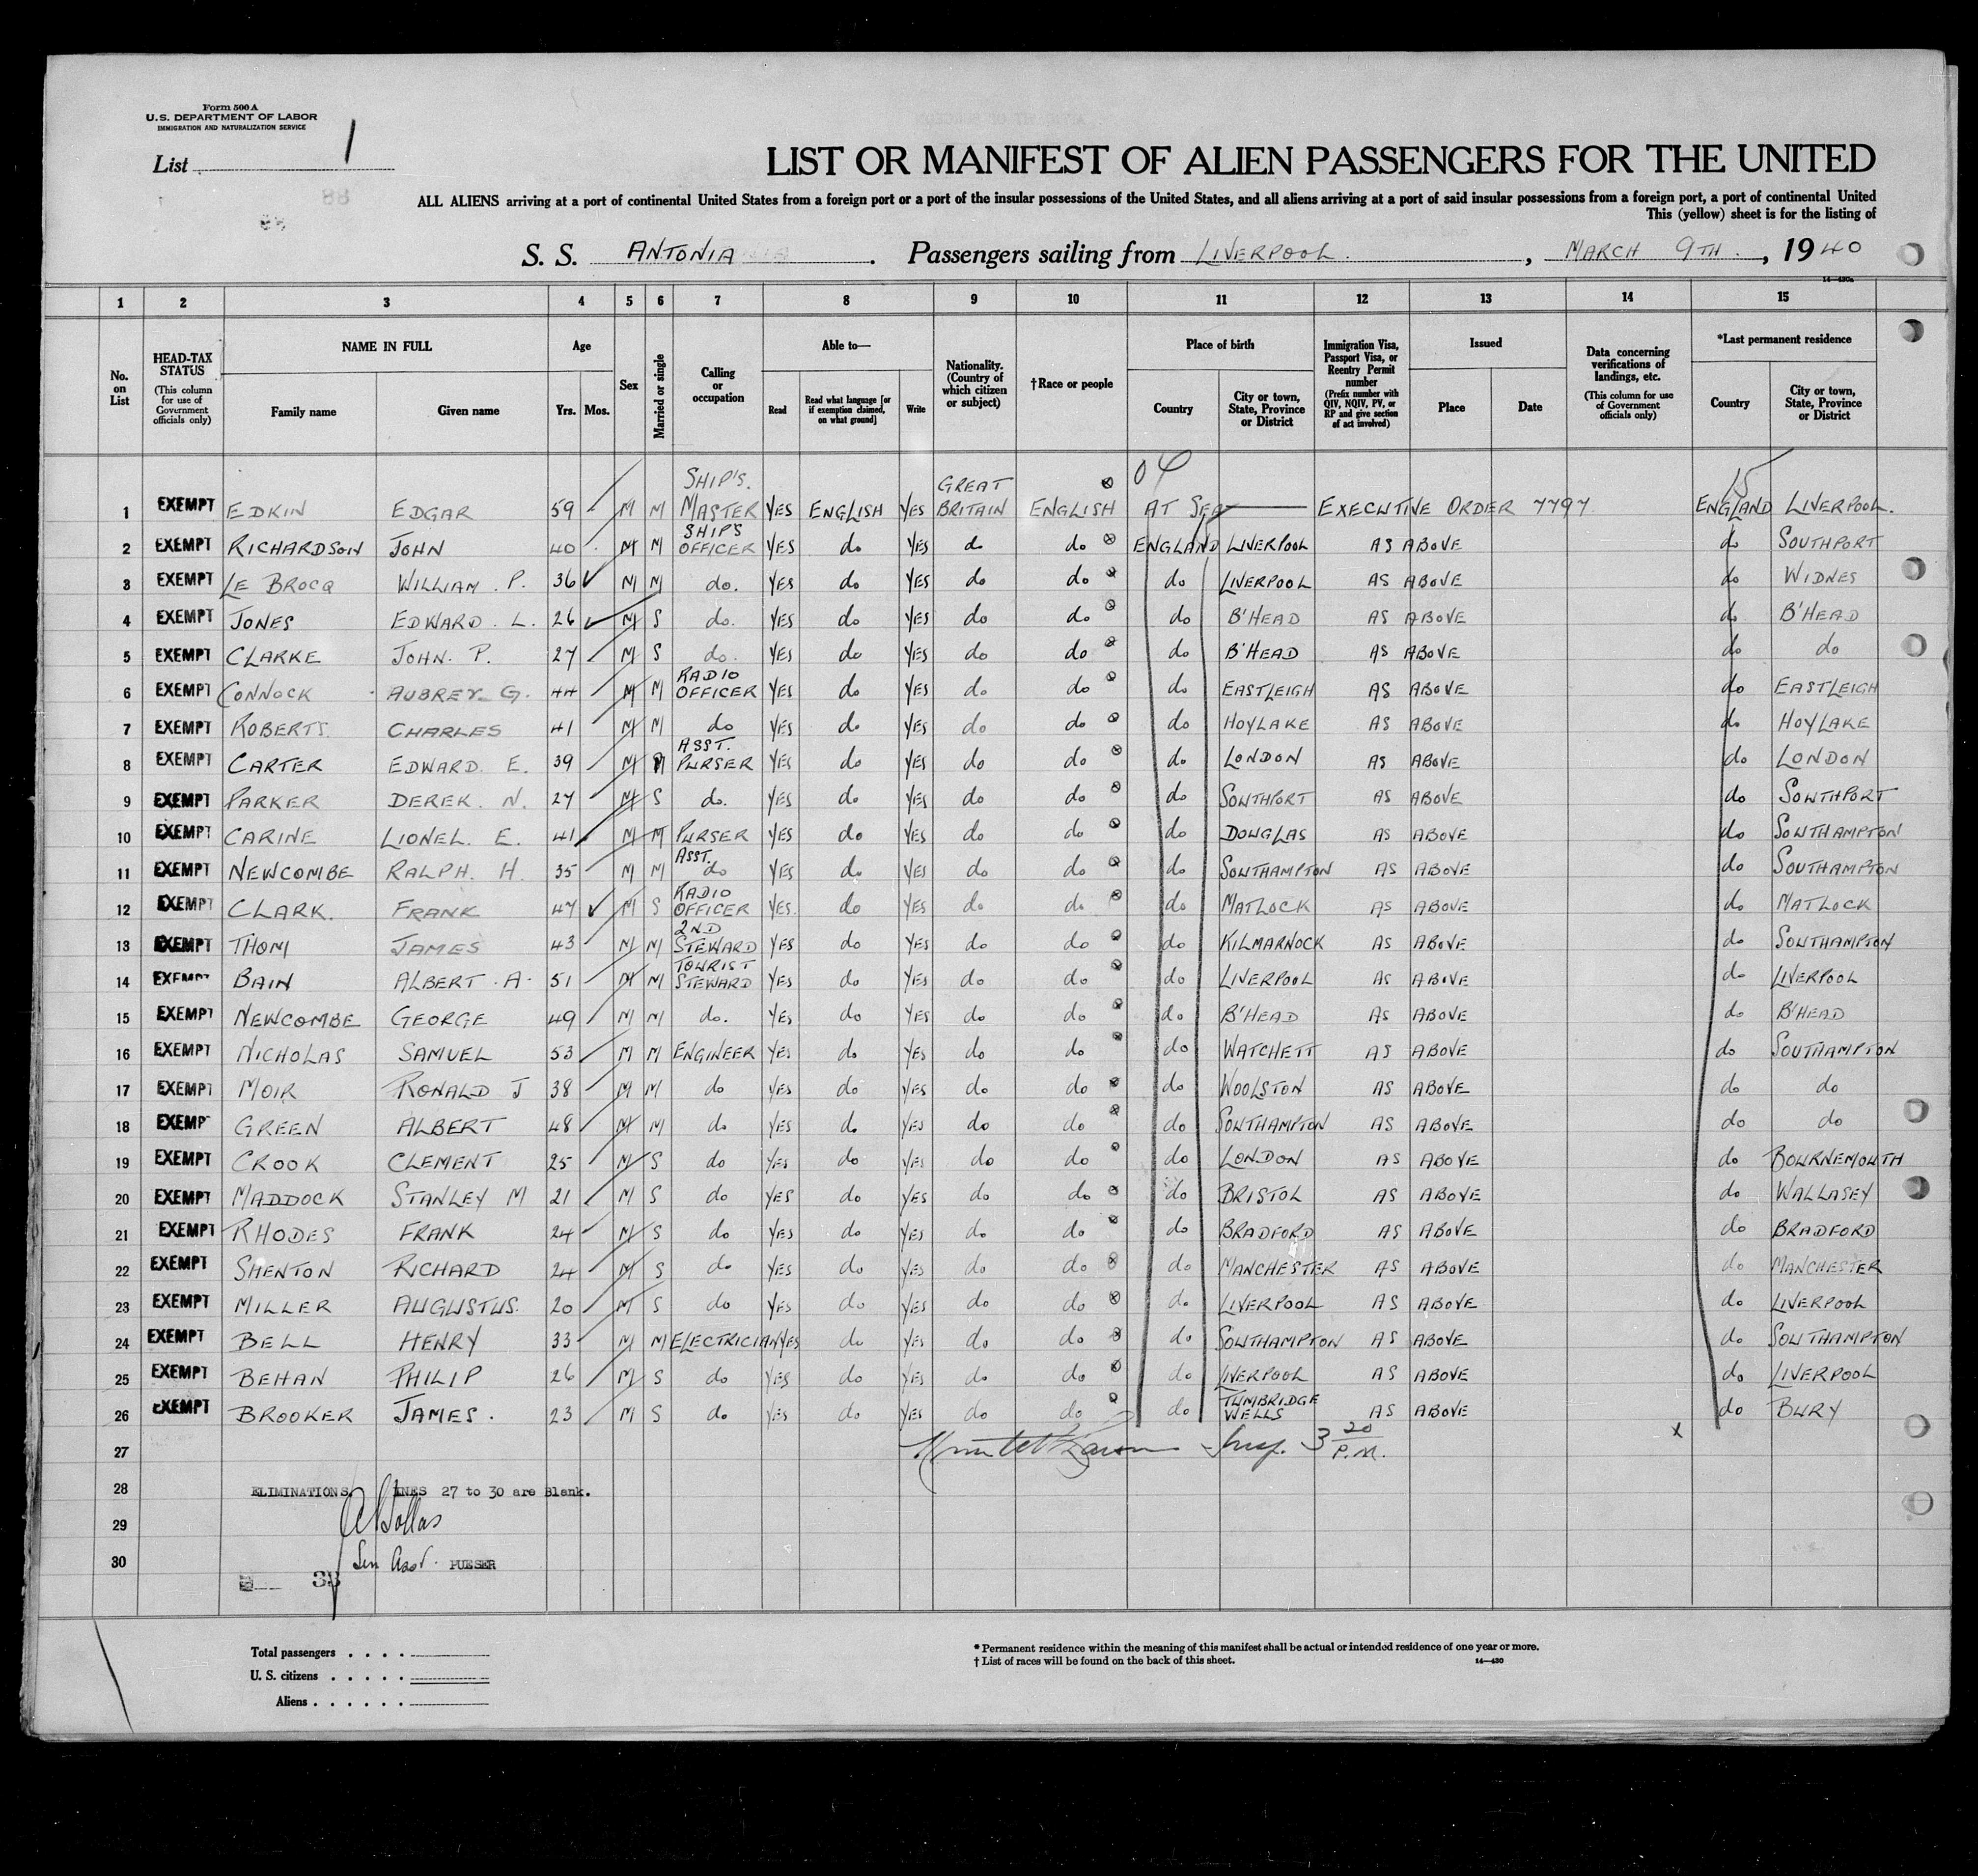 Form 500 A
U.S. DEPARTMENT OF LABOR
IMMIGRATION AND NATURALIZATION SERVICE
List 1
88
LIST OR MANIFEST OF ALIEN PASSENGERS FOR THE UNITED
ALL ALIENS arriving at a port of continental United States from a foreign port or a port of the insular possessions of the United States, and all aliens arriving at a port of said insular possessions from a foreign port, a port of continental United
This (yellow) sheet is for the listing of
S. S. ANTONIA . Passengers sailing from LIVERPOOL. , MARCH 9TH. , 1940
14—430a
1 2 3 4 5 6 7 8 9 10 11 12 13 14 15
No. on List
HEAD-TAX STATUS (This column for use of Government officials only)
NAME IN FULL Family name Given name
Age Yrs. Mos.
Sex
Married or single
Calling or occupation
Able to— Read Read what language [or if exemption claimed, on what ground] Write
Nationality. (Country of which citizen or subject)
†Race or people
Place of birth Country City or town, State, Province or District
Immigration Visa, Passport Visa, or Reentry Permit number (Prefix number with QIV, NQIV, PV, or RP and give section of act involved)
Issued Place Date
Data concerning verifications of landings, etc. (This column for use of Government officials only)
*Last permanent residence Country City or town, State, Province or District
04 15
1 EXEMPT EDKIN EDGAR 59 M M SHIP'S. MASTER YES ENGLISH YES GREAT BRITAIN ENGLISH AT SEA EXECUTIVE ORDER 7797 ENGLAND LIVERPOOL.
2 EXEMPT RICHARDSON JOHN 40 M M SHIP'S OFFICER YES do YES do do ENGLAND LIVERPOOL AS ABOVE do SOUTHPORT
3 EXEMPT LE BROCQ WILLIAM . P. 36 M M do. YES do YES do do do LIVERPOOL AS ABOVE do WIDNES
4 EXEMPT JONES EDWARD . L. 26 M S do. YES do YES do do do B'HEAD AS ABOVE do B'HEAD
5 EXEMPT CLARKE JOHN. P. 27 M S do. YES do YES do do do B'HEAD AS ABOVE do do
6 EXEMPT CONNOCK AUBREY G. 44 M M RADIO OFFICER YES do YES do do do EASTLEIGH AS ABOVE do EASTLEIGH
7 EXEMPT ROBERTS. CHARLES 41 M M do YES do YES do do do HOYLAKE AS ABOVE do HOYLAKE
8 EXEMPT CARTER EDWARD. E. 39 M M ASST. PURSER YES do YES do do do LONDON AS ABOVE do LONDON
9 EXEMPT PARKER DEREK. N. 27 M S do. YES do YES do do do SOUTHPORT AS ABOVE do SOUTHPORT
10 EXEMPT CARINE LIONEL. E. 41 M M PURSER YES do YES do do do DOUGLAS AS ABOVE do SOUTHAMPTON
11 EXEMPT NEWCOMBE RALPH. H. 35 M M ASST. do YES do YES do do do SOUTHAMPTON AS ABOVE do SOUTHAMPTON
12 EXEMPT CLARK. FRANK 47 M S RADIO OFFICER YES. do YES do do do MATLOCK AS ABOVE do MATLOCK
13 EXEMPT THOM JAMES 43 M M 2ND STEWARD YES do YES do do do KILMARNOCK AS ABOVE do SOUTHAMPTON
14 EXEMPT BAIN ALBERT . A. 51 M M TOURIST STEWARD YES do YES do do do LIVERPOOL AS ABOVE do LIVERPOOL
15 EXEMPT NEWCOMBE GEORGE 49 M M do. YES do YES do do do B'HEAD AS ABOVE do B'HEAD
16 EXEMPT NICHOLAS SAMUEL 53 M M ENGINEER YES do YES do do do WATCHETT AS ABOVE do SOUTHAMPTON
17 EXEMPT MOIR RONALD J 38 M M do YES do YES do do do WOOLSTON AS ABOVE do do
18 EXEMP GREEN ALBERT 48 M M do YES do YES do do do SOUTHAMPTON AS ABOVE do do
19 EXEMPT CROOK CLEMENT 25 M S do YES do YES do do do LONDON AS ABOVE do BOURNEMOUTH
20 EXEMPT MADDOCK STANLEY M 21 M S do YES do YES do do do BRISTOL AS ABOVE do WALLASEY
21 EXEMPT RHODES FRANK 24 M S do YES do YES do do do BRADFORD AS ABOVE do BRADFORD
22 EXEMPT SHENTON RICHARD 24 M S do YES do YES do do do MANCHESTER AS ABOVE do MANCHESTER
23 EXEMPT MILLER AUGUSTUS. 20 M S do YES do YES do do do LIVERPOOL AS ABOVE do LIVERPOOL
24 EXEMPT BELL HENRY 33 M M ELECTRICIAN YES do YES do do do SOUTHAMPTON AS ABOVE do SOUTHAMPTON
25 EXEMPT BEHAN PHILIP 26 M S do YES do YES do do do LIVERPOOL AS ABOVE do LIVERPOOL
26 EXEMPT BROOKER JAMES . 23 M S do YES do YES do do do TUMBRIDGE WELLS AS ABOVE do BURY
27 Insp. 3 20 P.M. x
28 ELIMINATIONS. LINES 27 to 30 are Blank.
29
30 Sen Asst. PURSER
38
Total passengers . . . .
U. S. citizens . . . . .
Aliens . . . . . .
* Permanent residence within the meaning of this manifest shall be actual or intended residence of one year or more.
† List of races will be found on the back of this sheet. 14—430